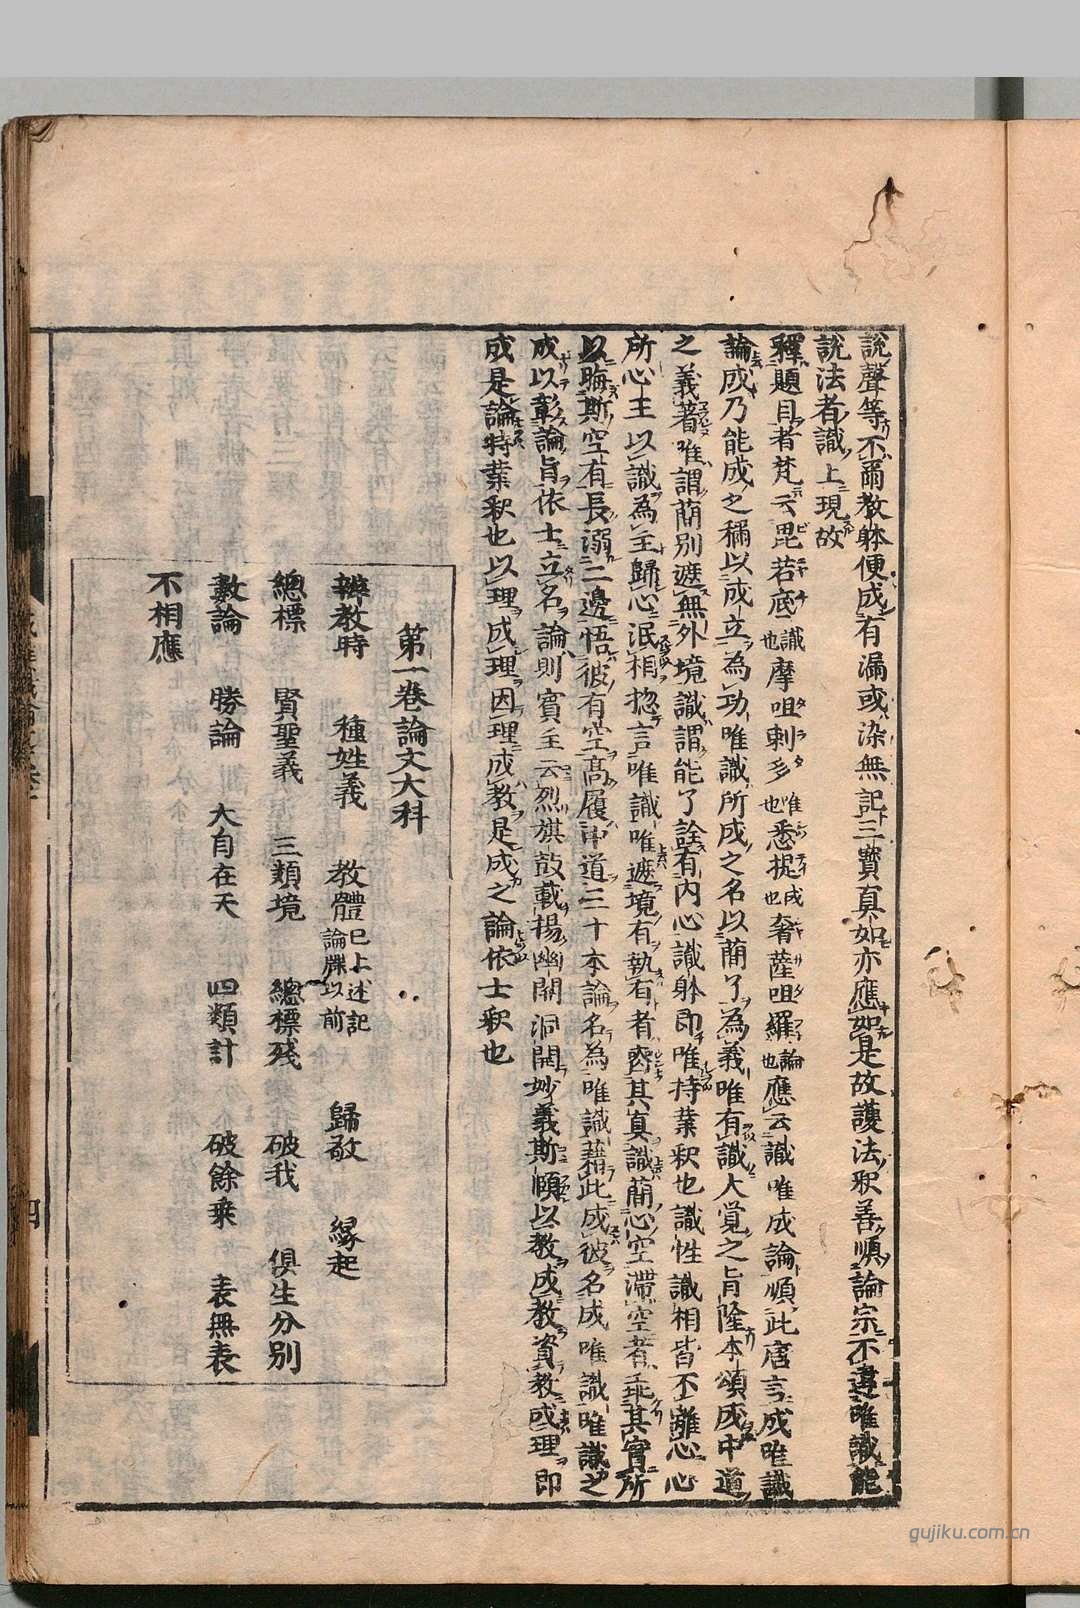 說聲等不爾教躰便成有漏或染無記三寶真如亦應如是故護法釈善順論宗不違唯識能
說法者識上現故
釋題目者梵云毘若底識也摩呾剌多唯也悉提成也奢薩呾羅論也應云識唯成論順此唐言成唯識
論成乃能成之稱以成立為功唯識所成之名以簡了為義唯有識大覺之旨隆本頌成中道
之義著唯謂簡別遮無外境識謂能了詮有內心識躰即唯持業釈也識性識相皆不離心心
所心王以識為主歸心泯相揔言唯識唯遮境有執有者喪其真識簡心空滞空者乖其實所
以晦斯空有長溺二邊悟彼有空高履中道三十本論名為唯識藉此成彼名成唯識唯識之
成以彰論旨依士立名論則賓主云烈旗鼓載揚幽関洞開妙義斯順以教成教資教成理即
成是論持業釈也以理成理因理成教是成之論依士釈也
第一卷論文大科
辨教時 種姓義 教體已上述記論牒以前 歸敬 縁起
總標 賢聖義 三類境 總標残 破我 俱生分別
數論 勝論 大自在天 四類計 破餘乗 表無表
不相應
四
gujiku.com.cn